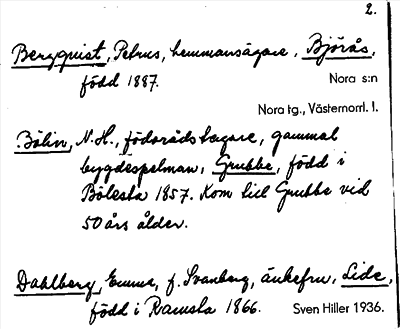 2.
Bergquist, Petrus, hemmansägare, Björås,
född 1887. Nora s:n
Nora tg., Västernorrl. l.
Bölin, N.H., födorådstagare, gammal
bygdespelman, Grubbe, född i
Bölesta 1857. Kom till Grubbe vid
50 års ålder.
Dahlberg, Emma, f. Svanberg, änkefru, Lide,
född i Ramsta 1866. Sven Hiller 1936.